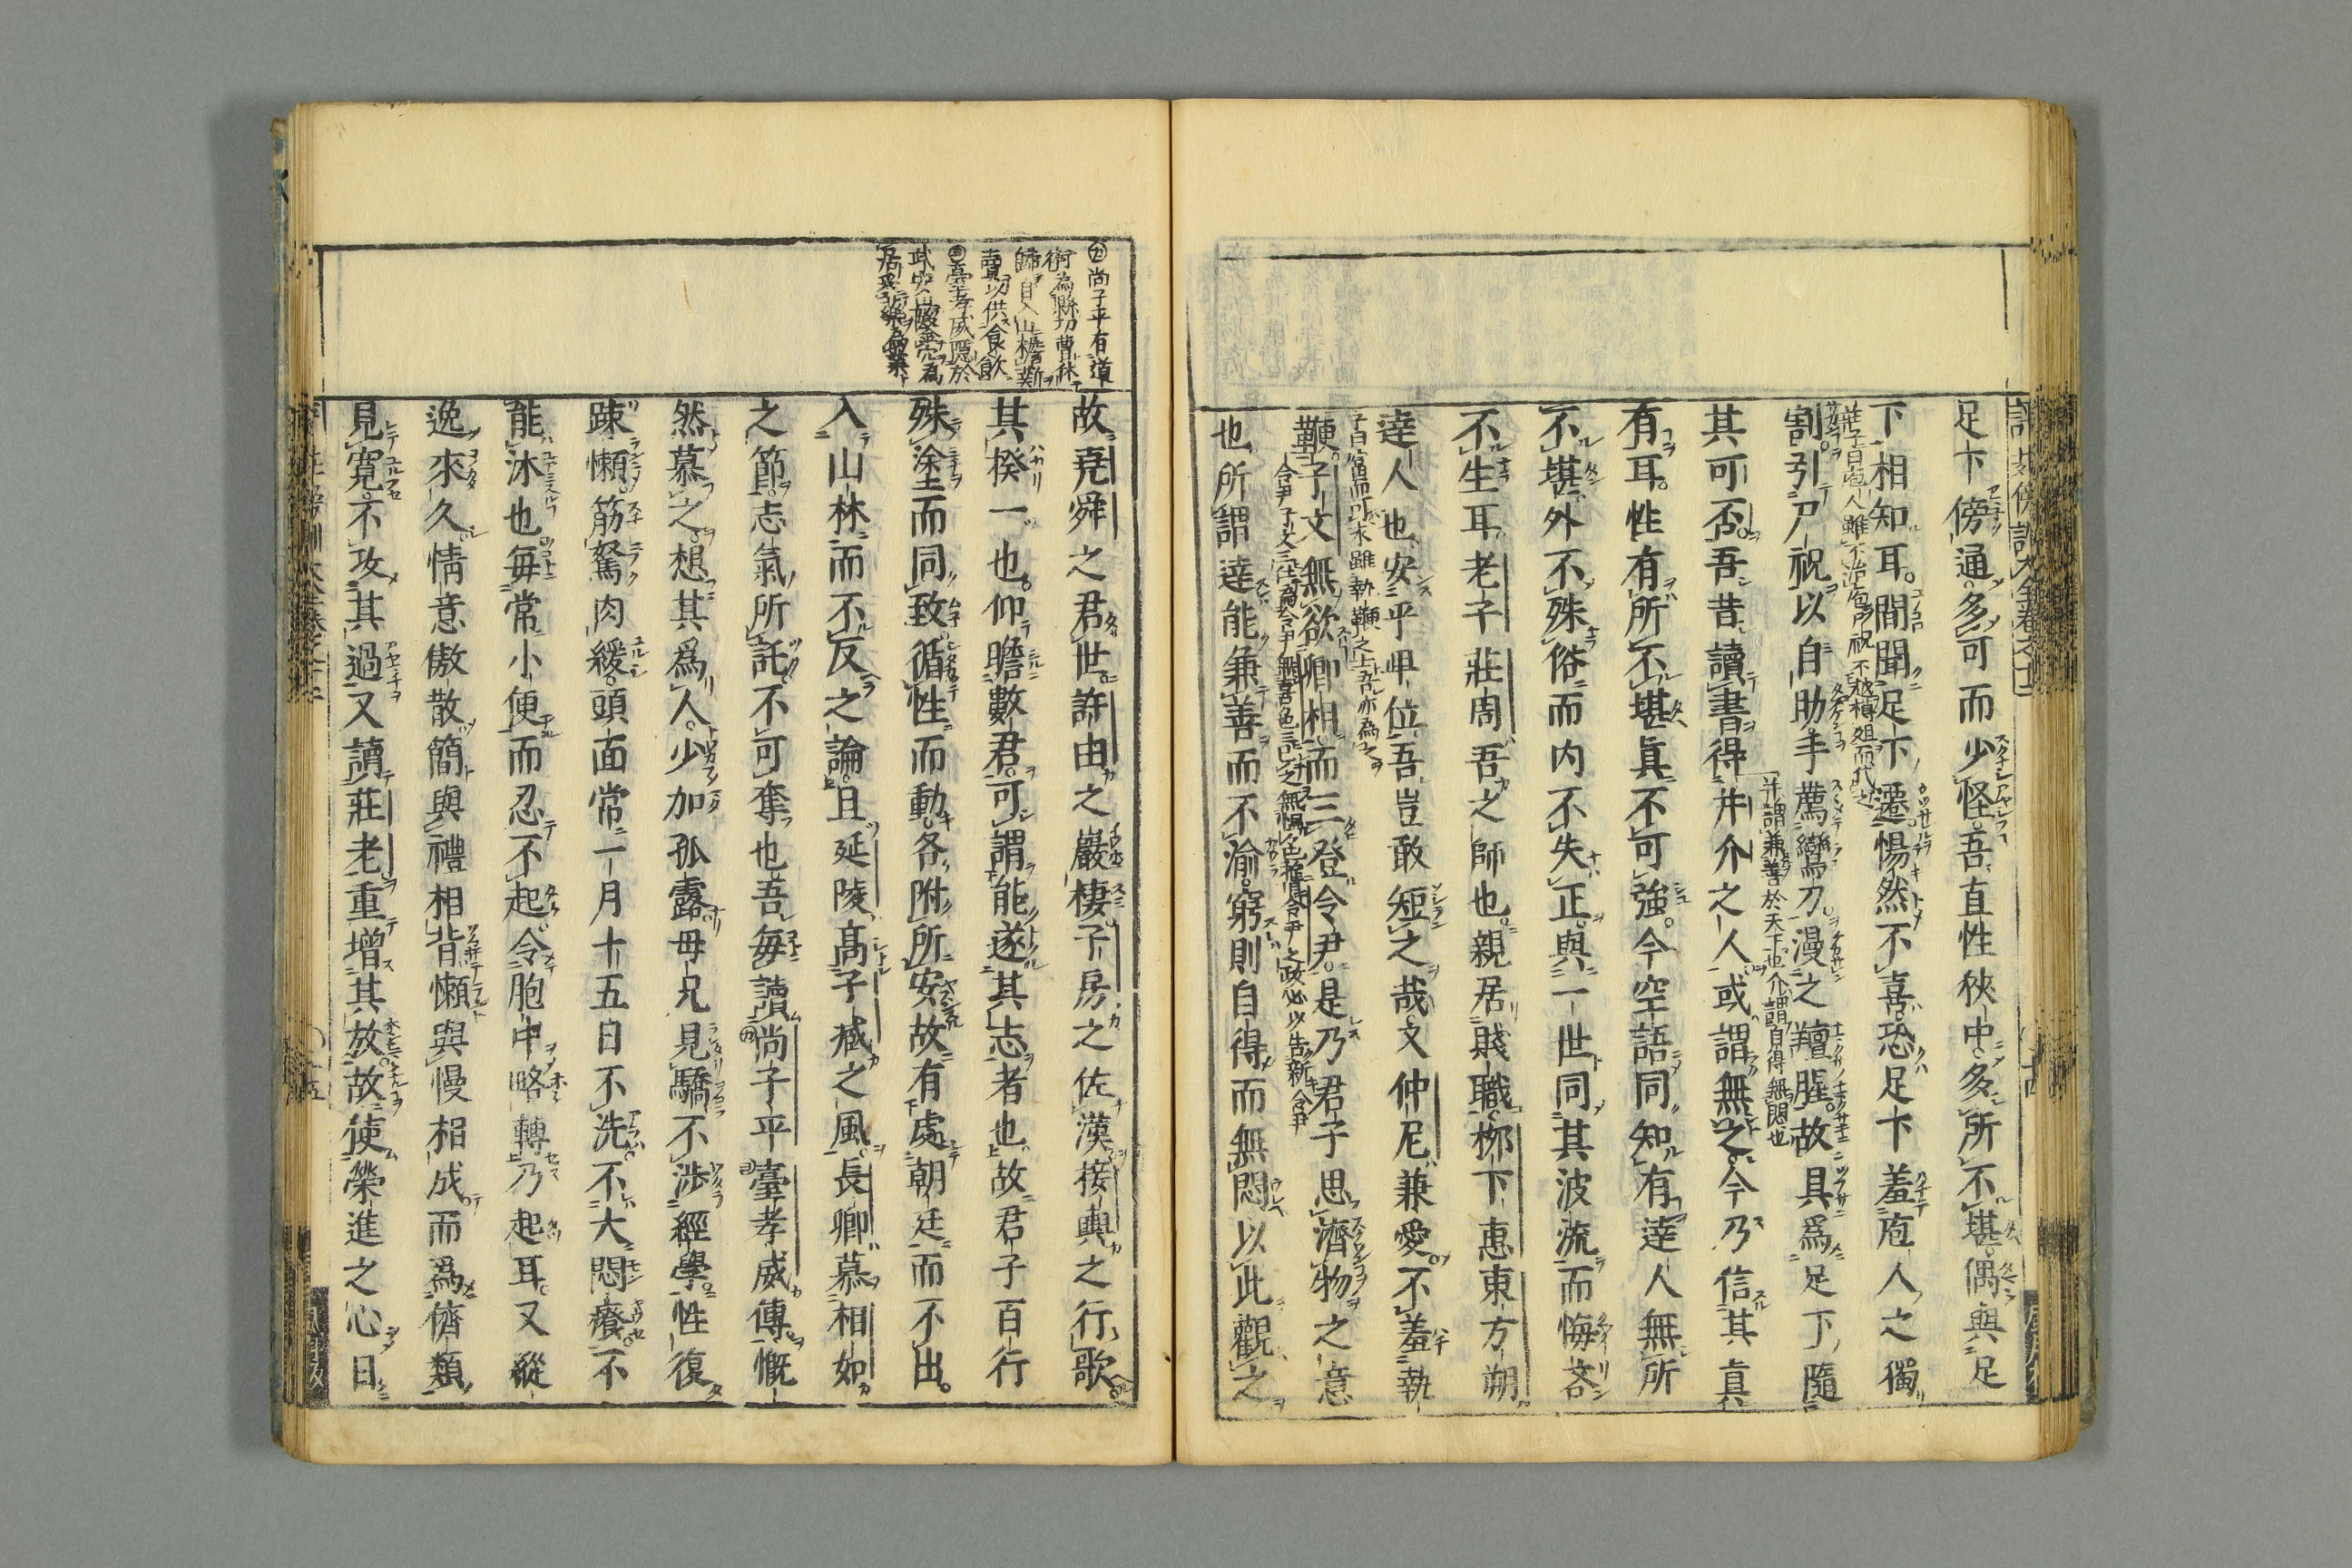 足下傍通多可而少怪吾直性狹中多所不堪偶與足
下相知耳間聞足下遷惕然不喜恐足下羞庖人之獨
莊子曰庖人雖不治庖尸祝不越樽俎而代之
割引尸祝以自助手薦鸞刀漫之羶腥故具爲足下隨
幷謂兼善於天下也介謂自得無悶也
其可否吾昔讀書得幷介之人或謂無之今乃信其眞
有耳性有所不堪眞不可強今空語同知有達人無所
不堪外不殊俗而内不失正與一世同其波流而悔吝
不生耳老子莊周吾之師也親居賤職柳下惠東方朔
達人也安乎卑位吾豈敢短之哉文仲尼兼愛不羞執
子曰富而可求雖執鞭之士吾亦為之
鞭子文無欲卿相而三登令尹是乃君子思濟物之意
令尹子文三仕爲令尹無喜色三已之無慍色舊令尹之政必以告新令尹
也所謂達能兼善而不渝窮則自得而無悶以此觀之
尚子平有道
術為縣功曹休
歸自入山檐薪
賣以供食飲
臺孝威隱於
武安山鑿穴為
居采藥為業
故堯舜之君世許由之巖棲子房之佐漢接輿之行歌
其揆一也仰瞻數君可謂能遂其志者也故君子百行
殊塗而同致循性而動各附所安故有處朝廷而不出
入山林而不反之論且延陵高子臧之風長卿慕相如
之節志氣所託不可奪也吾每讀尚子平臺孝威傳慨
然慕之想其爲人少加孤露母兄見驕不涉經學性復
疎懶筋駑肉緩頭面常一月十五日不洗不大悶癢不
能沐也每常小便而忍不起令胞中略轉乃起耳又縱
逸來久情意傲散簡與禮相背懶與慢相成而爲儕類
見寬不攻其過又讀莊老重增其放故使榮進之心日